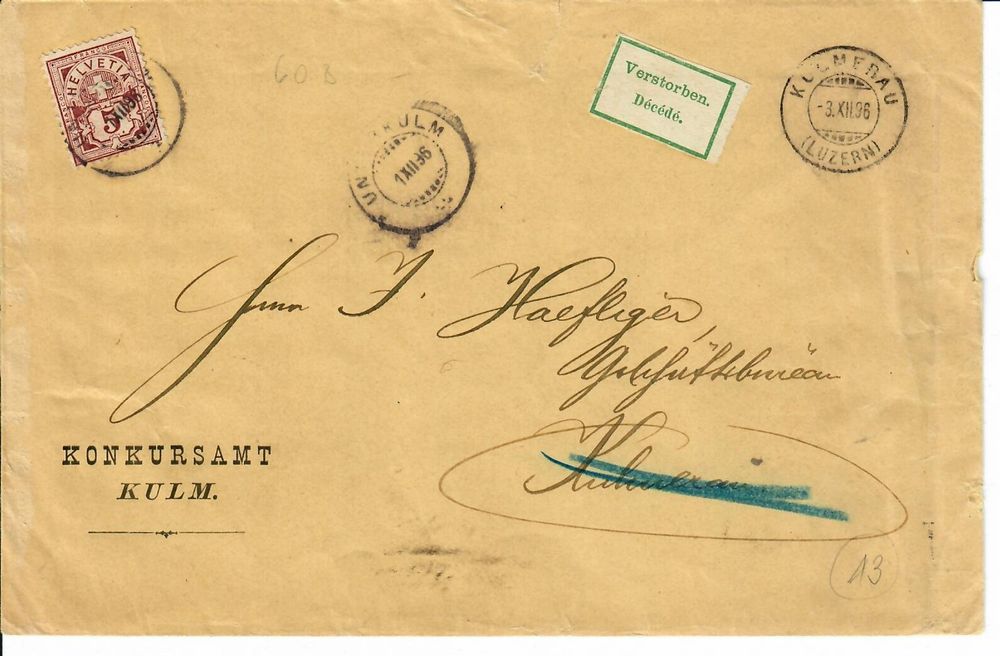 FRANCO
HELVETIA
5
XII 96
60 B
KULM
1 XII 96
UN
Verstorben.
Décédé.
KULMERAU
-3.XII.96
(LUZERN)
Herrn J. Haefliger,
Geschäftsbureau
Kulmerau
KONKURSAMT
KULM.
13